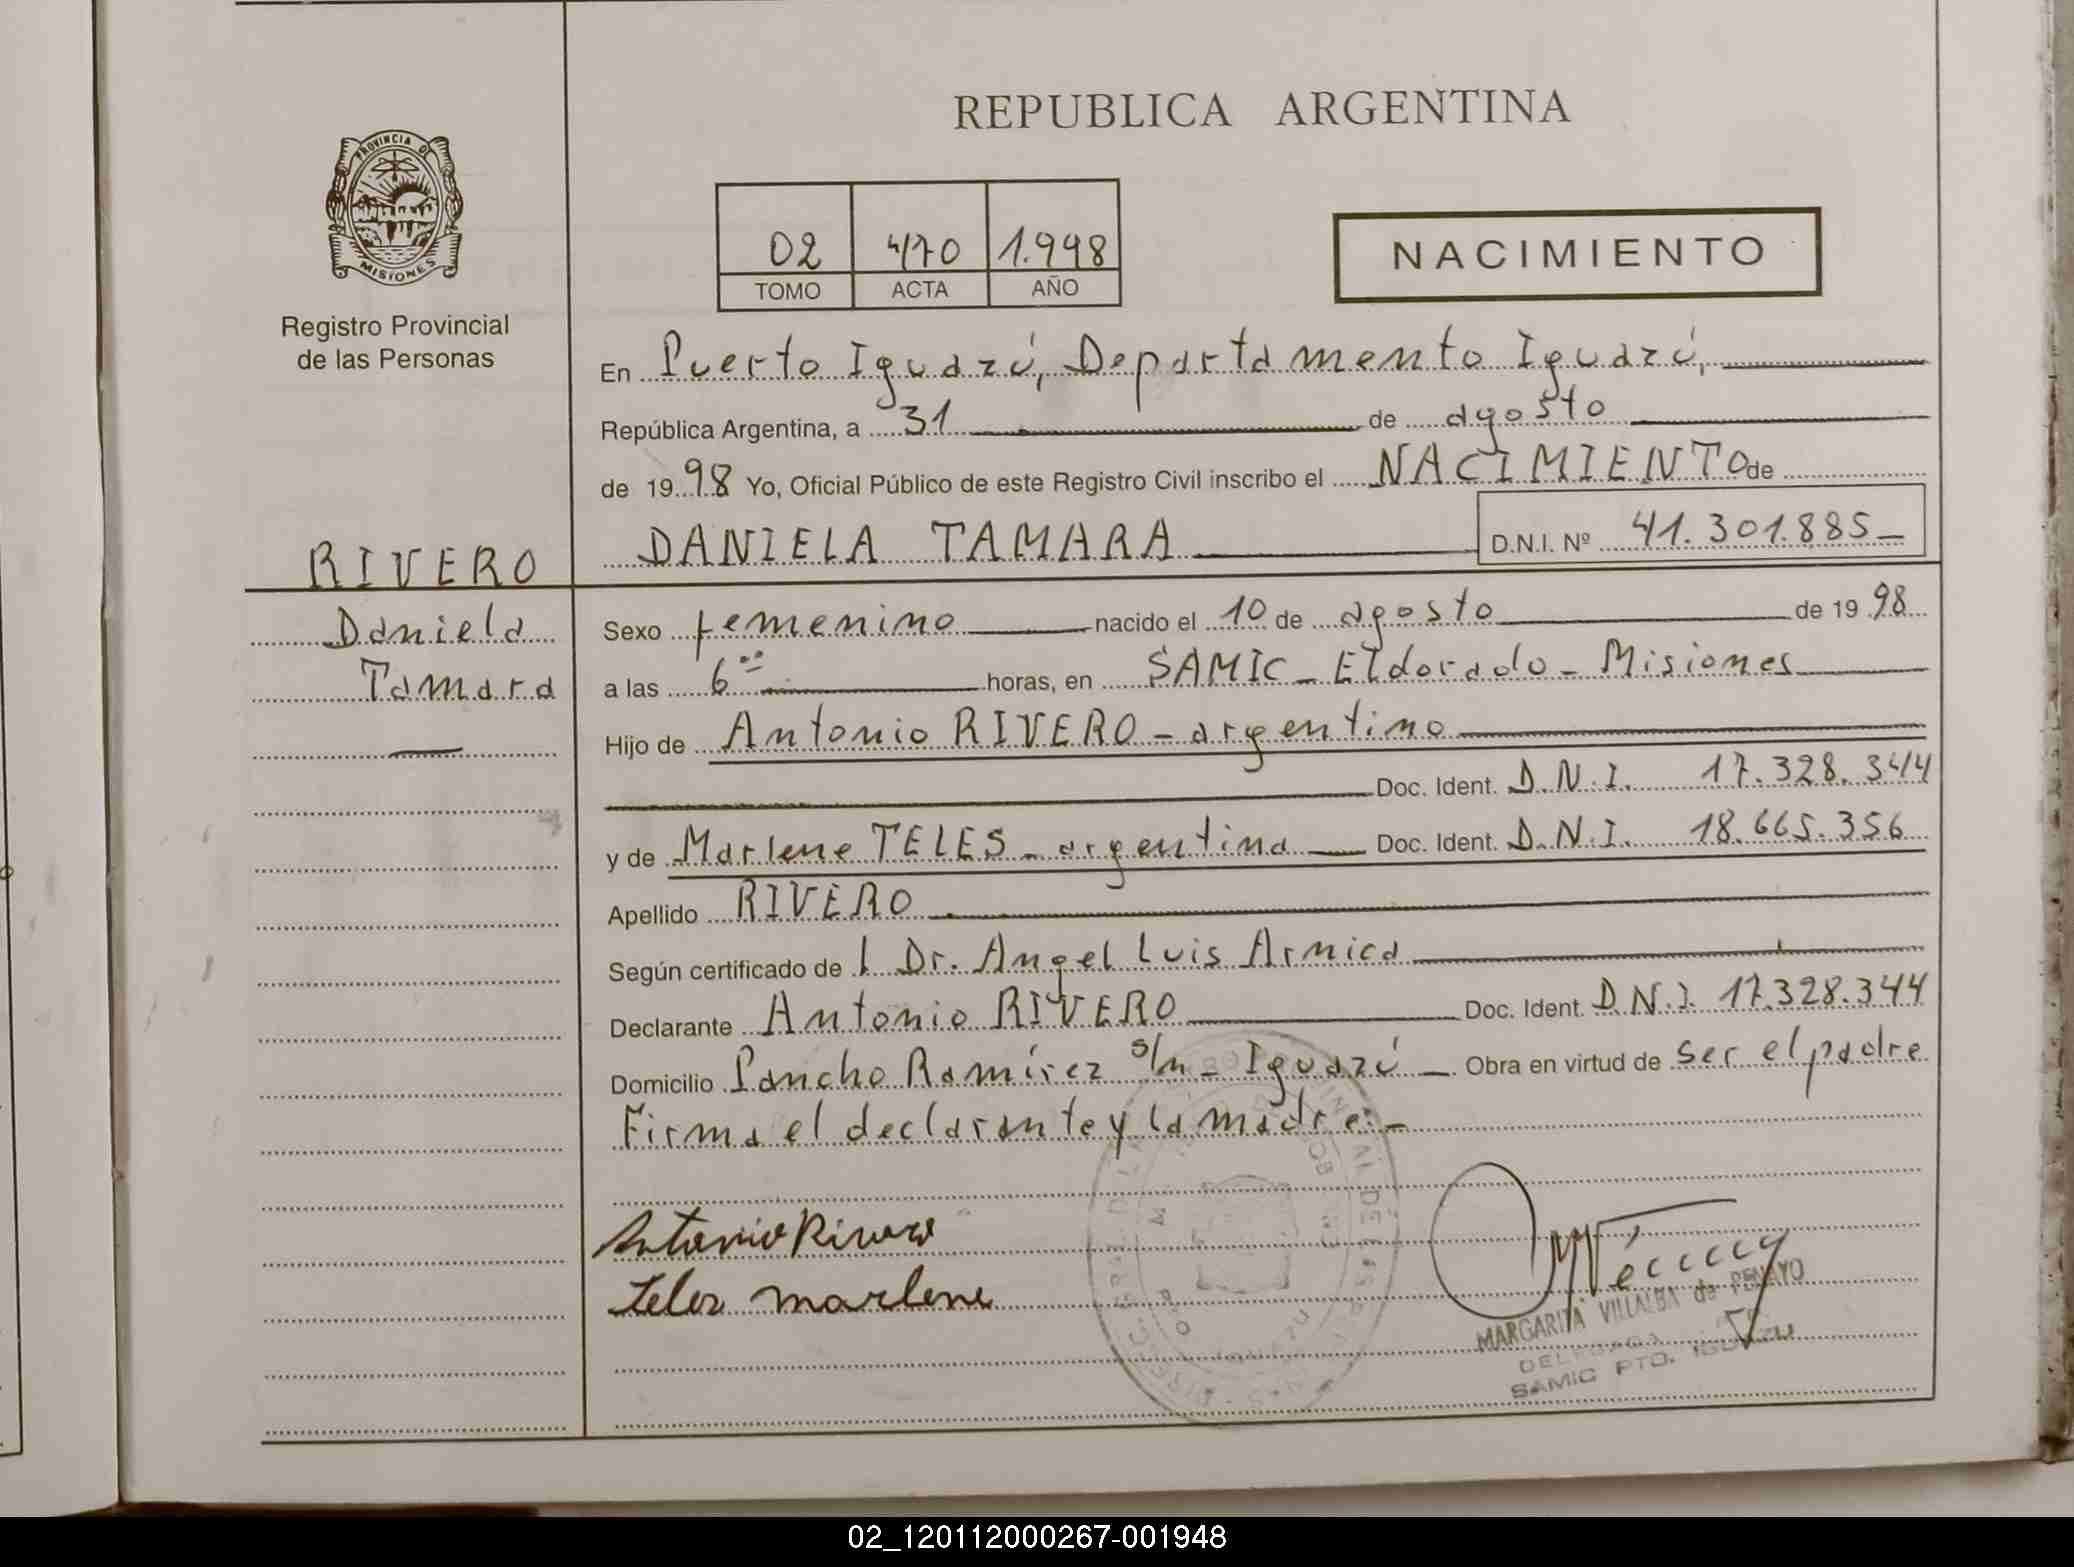 REPUBLICA ARGENTINA
PROVINCIA DE
MISIONES
Registro Provincial
de las Personas
02 470 1.998
TOMO ACTA AÑO
NACIMIENTO
En Puerto Iguazú, Departamento Iguazú,
República Argentina, a 31 de agosto
de 1998 Yo, Oficial Público de este Registro Civil inscribo el NACIMIENTO de
DANIELA TAMARA D.N.I. Nº 41.301.885
RIVERO
Daniela
Tamara
Sexo femenino nacido el 10 de agosto de 1998
a las 6 horas, en SAMIC - Eldorado - Misiones
Hijo de Antonio RIVERO - argentino
Doc. Ident. D.N.I. 17.328.344
y de Marlene TELES - argentina Doc. Ident. D.N.I. 18.665.356
Apellido RIVERO
Según certificado de l Dr. Angel Luis Arnica
Declarante Antonio RIVERO Doc. Ident. D.N.I. 17.328.344
Domicilio Pancho Ramírez s/n - Iguazú - Obra en virtud de ser el padre
Firma el declarante y la madre.-
Antonio Rivero
Teles marlene
MARGARITA VILLALBA de PENAYO
DELEGADA
SAMIC PTO. IGUAZU
02_120112000267-001948